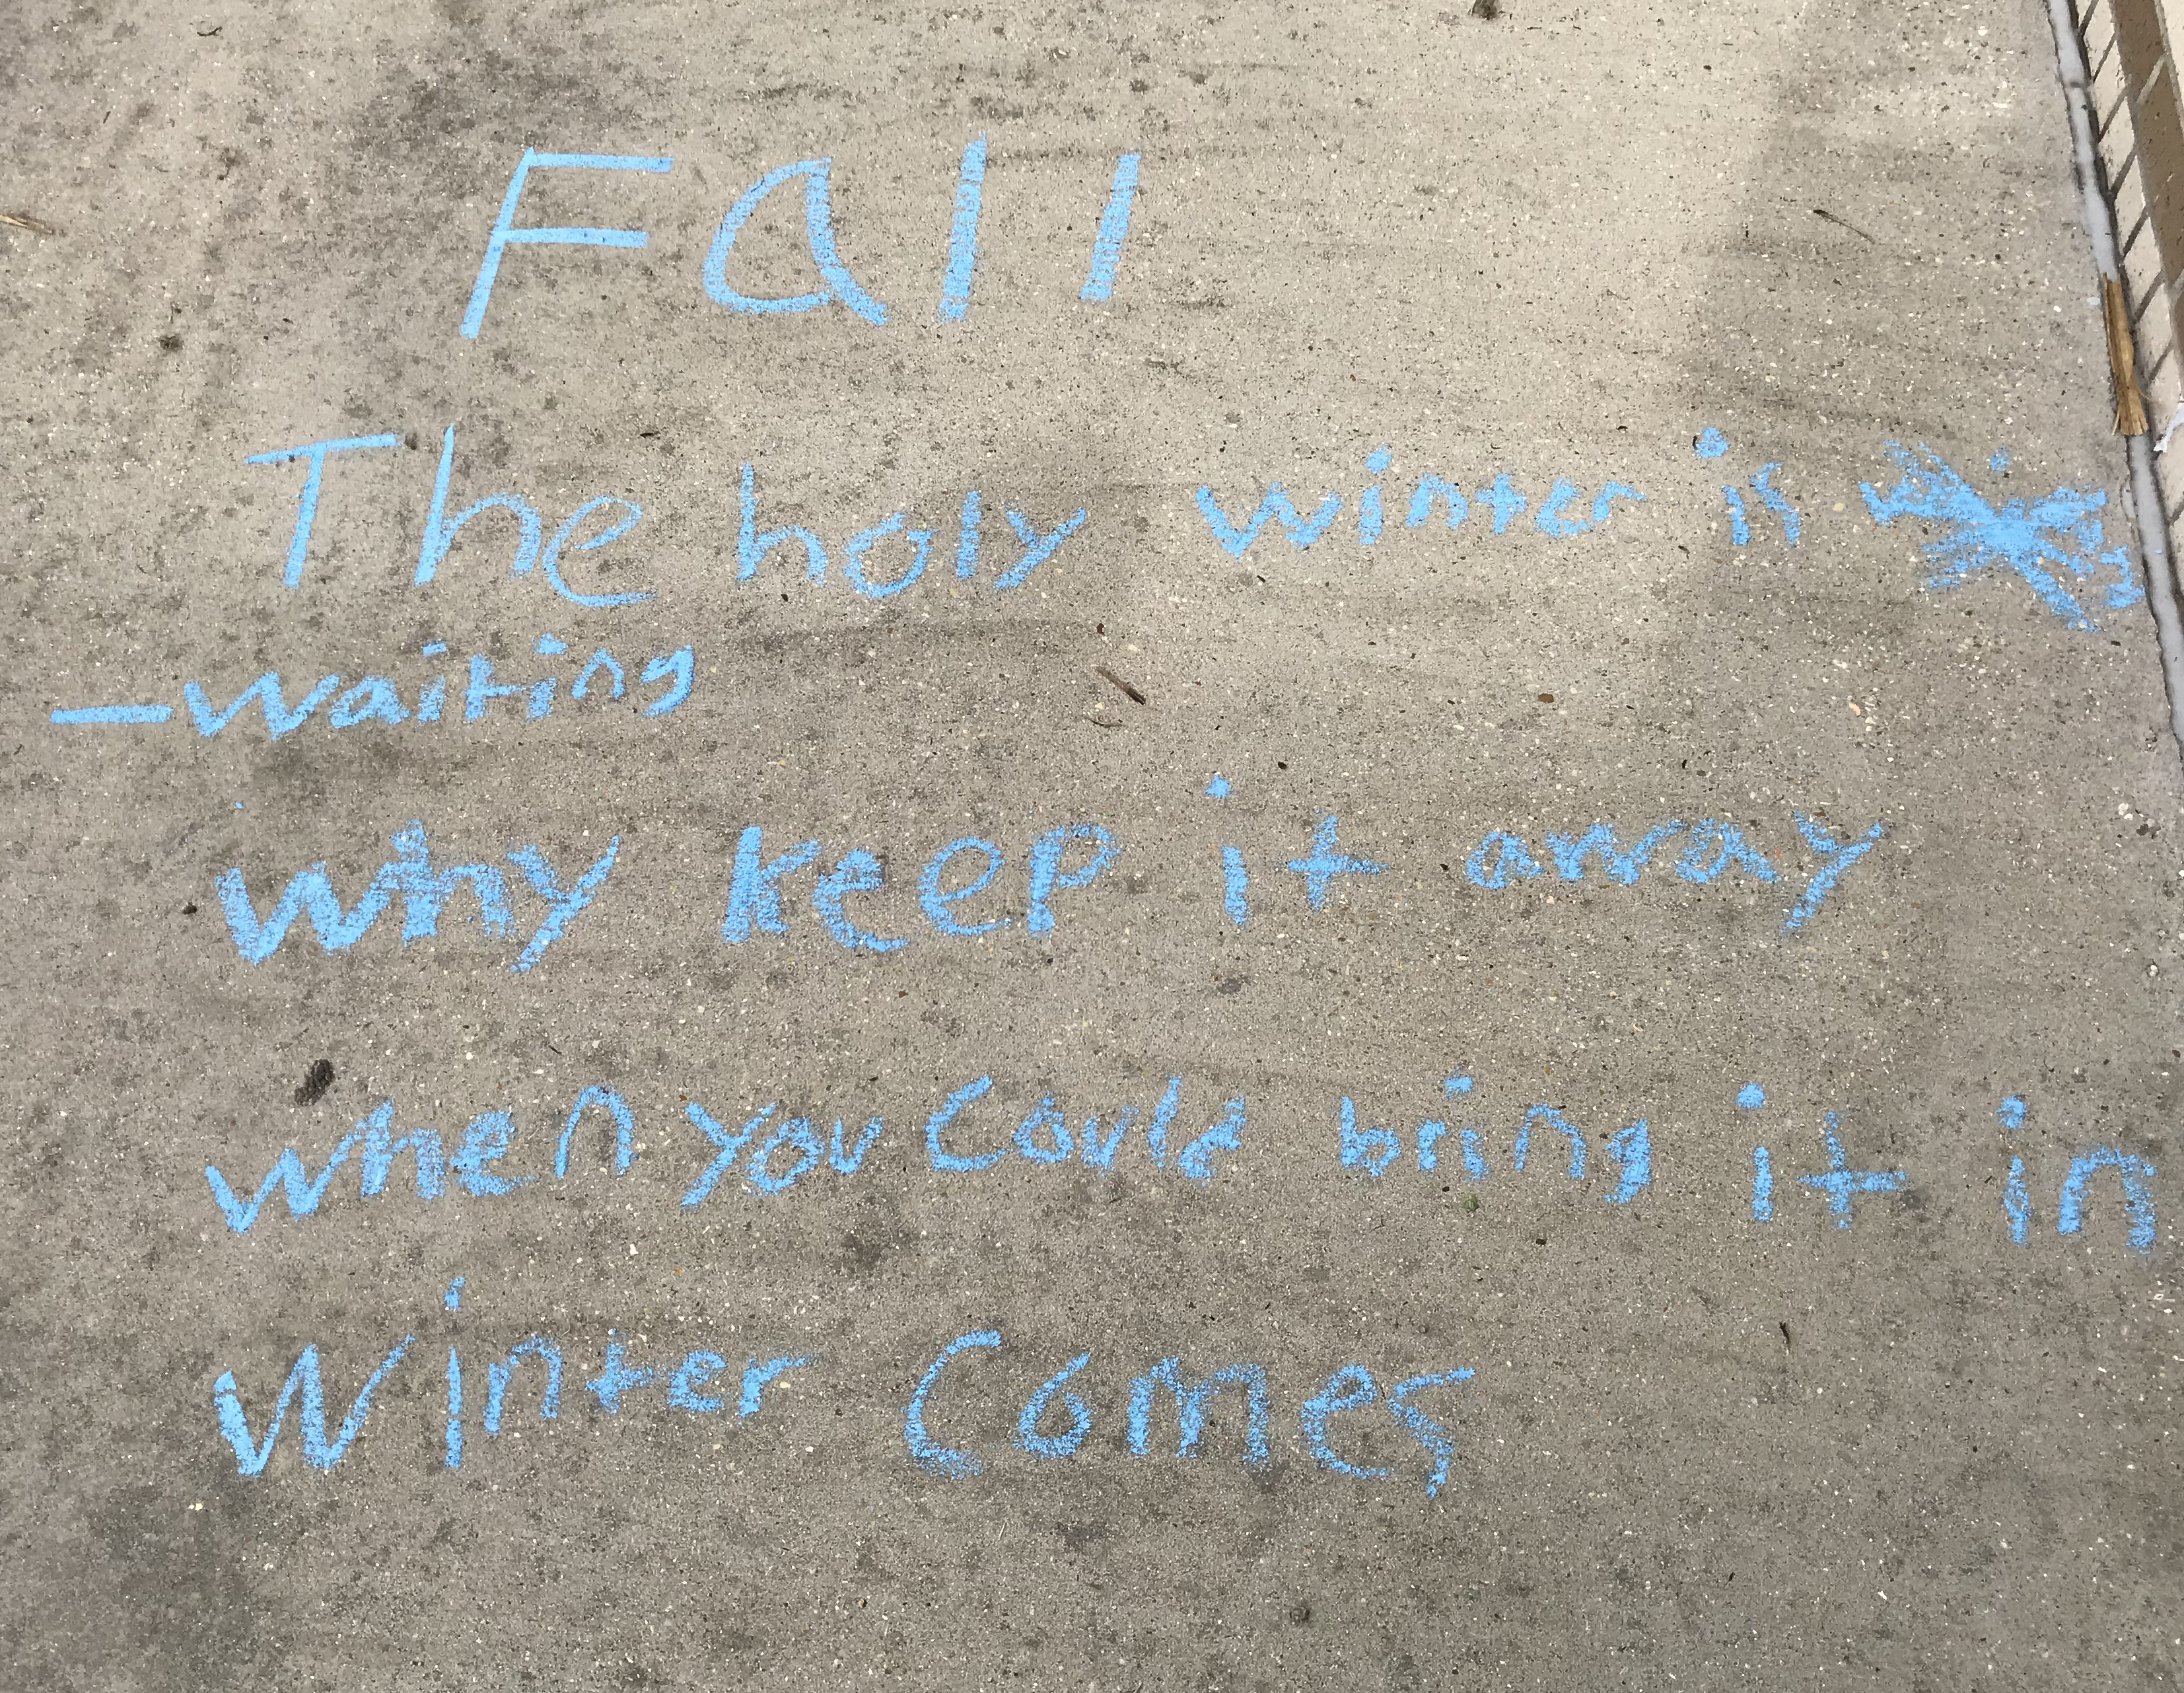 Fall
The holy winter is
—waiting
why keep it away
when you could bring it in
Winter Comes